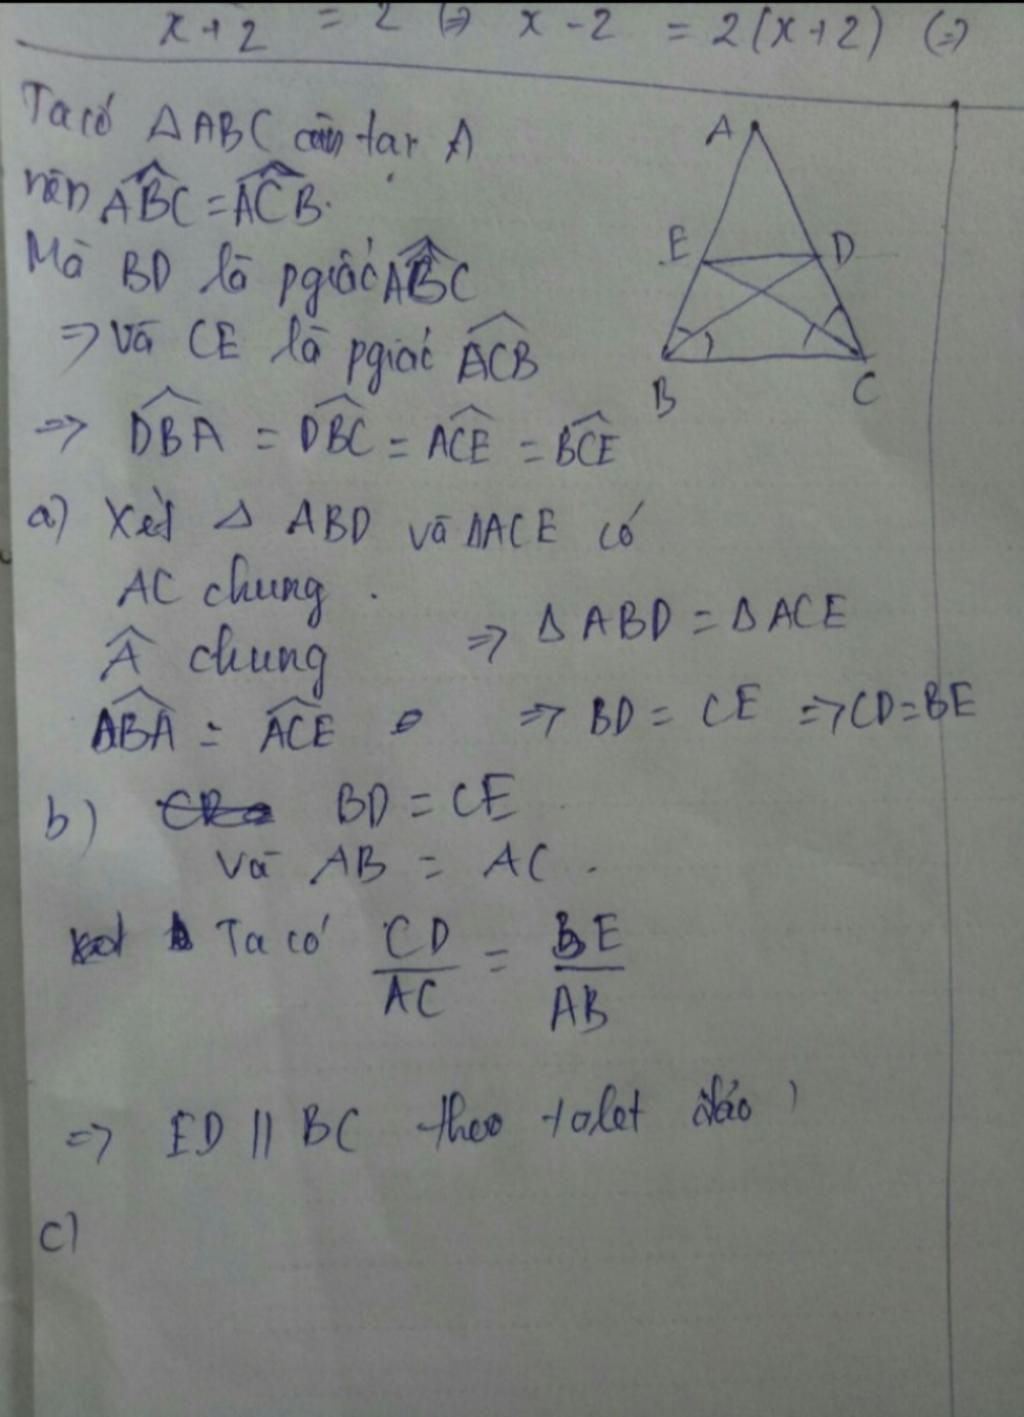 x+2 = 2 (=> x-2 = 2(x+2) (=>
Ta có ΔABC cân tại A
nên ABC = ACB.
Mà BD là pgiác ABC
=> và CE là pgiác ACB
=> DBA = DBC = ACE = BCE
a) Xét Δ ABD và ΔACE có
AC chung
A chung => Δ ABD = ΔACE
ABA = ACE => BD = CE => CD = BE
b) BD = CE
và AB = AC.
Ta có CD/AC = BE/AB
=> ED // BC theo talet đảo
c)
A
E D
B C